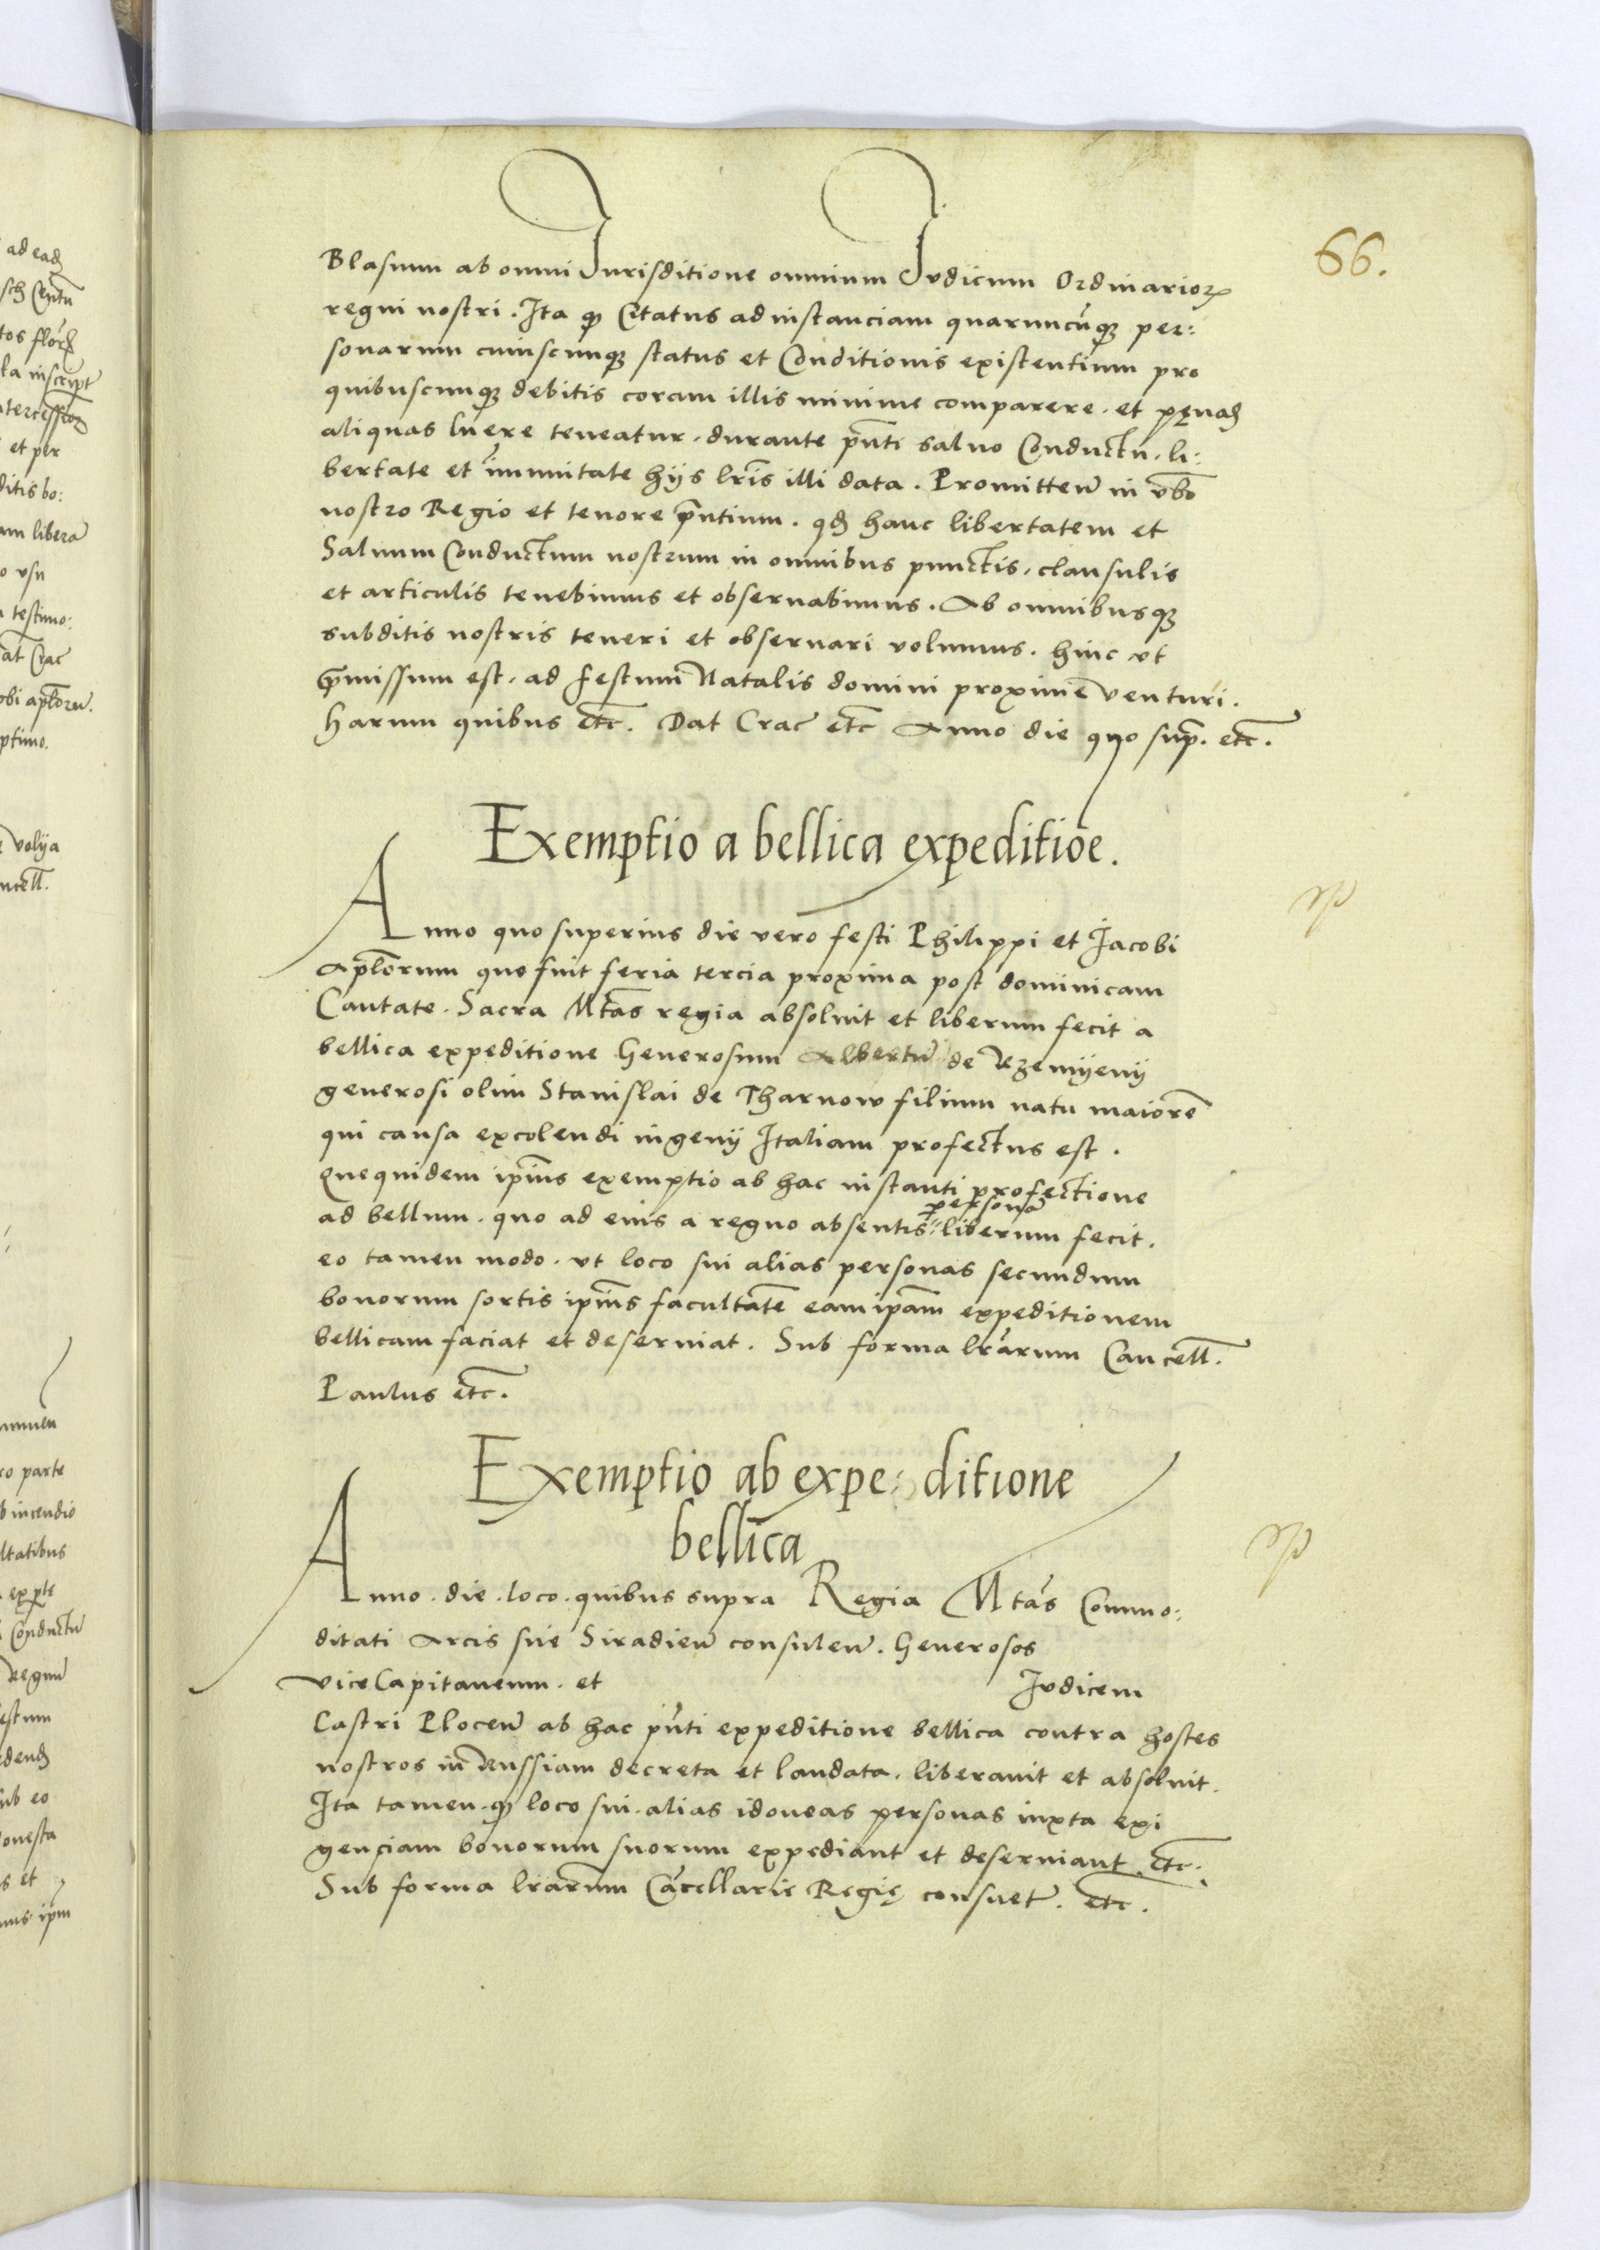 66.
Blasium ab omni Jurisditione omnium Judicum Ordinarioꝝ
regni nostri. Ita qꝫ Citatus ad instanciam quarumcūqꝫ per:
sonarum cuiuscunqꝫ status et Conditionis existentium pro
quibuscunqꝫ debitis coram illis minime comparere. et pęnas
aliquas luere teneatur. durante pñti saluo Conductu. li:
bertate et im̃unitate hijs lr̃is illi data. Promitteñ in ṽbo
nostro Regio et tenore pñtium. qd hanc libertatem et
Saluum Conductum nostrum in omnibus punctis, clausulis
et articulis tenebimus et obseruabimus. Ab omnibusqꝫ
subditis nostris teneri et obseruari volumus. hinc vt
p̃missum est, ad festum Natalis domini proxime venturi.
harum quibus etc̃. Dat Crac̃ etc̃ Anno die quo sup̃. etc̃.
Exemptio a bellica expeditiõe.
Anno quo superius die vero festi Philippi et Jacobi
Apl̃orum quo fuit feria tercia proxima post dominicam
Cantate. Sacra Mt̃as regia absoluit et liberum fecit a
bellica expeditione Generosum Albertũ de Rzemyeny
generosi olim Stanislai de Tharnow filium natu maiorẽ
qui causa excolendi ingenij Italiam profectus est.
Quequidem ip̃ius exemptio ab hac instanti profectione
personã
ad bellum. quo ad eius a regno absentis liberum fecit.
eo tamen modo. vt loco sui alias personas secundum
bonorum sortis ip̃ius facultatẽ eam ip̃am expeditionem
bellicam faciat et deseruiat. Sub forma lr̃arum Cancell̃.
Paulus etc̃.
Exemptio ab expe: ditione
bellica
Anno. die. loco. quibus supra Regia Mt̃as Commo:
ditati Arcis sue Siradieñ consuleñ. Generosos
viceCapitaneum. et Judicem
Castri Ploceñ ab hac pñti expeditione bellica contra hostes
nostros in Russiam decreta et laudata. liberauit et absoluit.
Ita tamen. qꝫ loco sui. alias idoneas personas iuxta exi
genciam bonorum suorum expediant et deseruiant etc̃.
Sub forma lr̃arum Cãcellarie Regię consuet̃. etc̃.